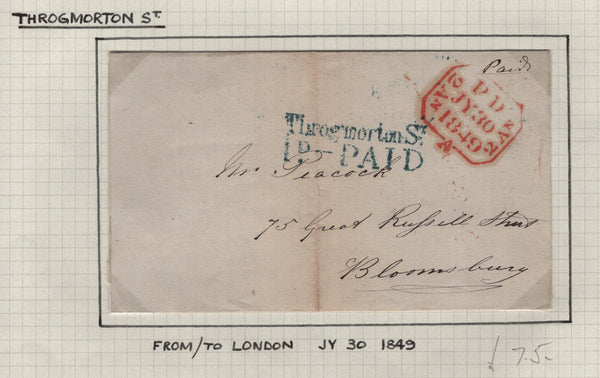 THROGMORTON ST.
Paid
PD
JY 30
1849
2 AN 2
2 AN 2
A
Throgmorton St.
1D–PAID
Mr. Peacock
75 Great Russell Street
Bloomsbury
FROM/TO LONDON JY 30 1849
7.5-